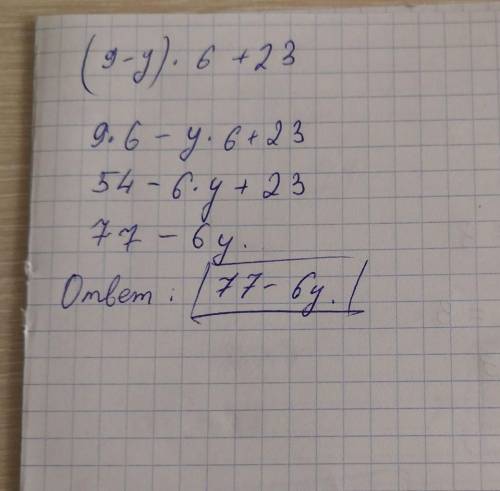 (9-y)· 6 +23
9·6 - y·6+23
54 - 6·y + 23
77 - 6y.
Ответ: 77- 6y.